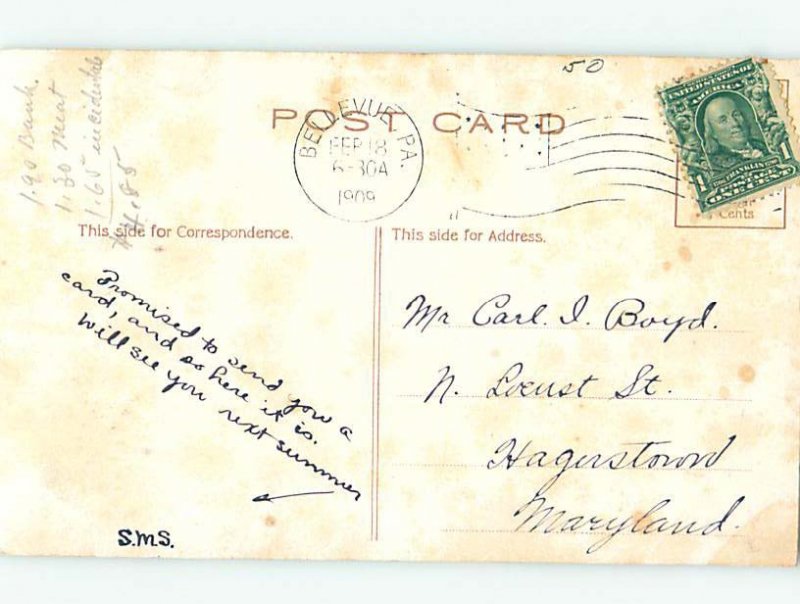 50
1.90 Bank.
1.30 Meat
1.65 incidentals
4.85
POST CARD
BELLEVUE, PA.
FEB 18
6-30A
1909
UNITED STATES OF
AMERICA
1 1
ONE CENT
Cents
This side for Correspondence.
This side for Address.
Promised to send you a
card, and so here it is.
Will see you next summer
S.M.S.
Mr Carl. I. Boyd.
N. Locust St.
Hagerstown
Maryland.